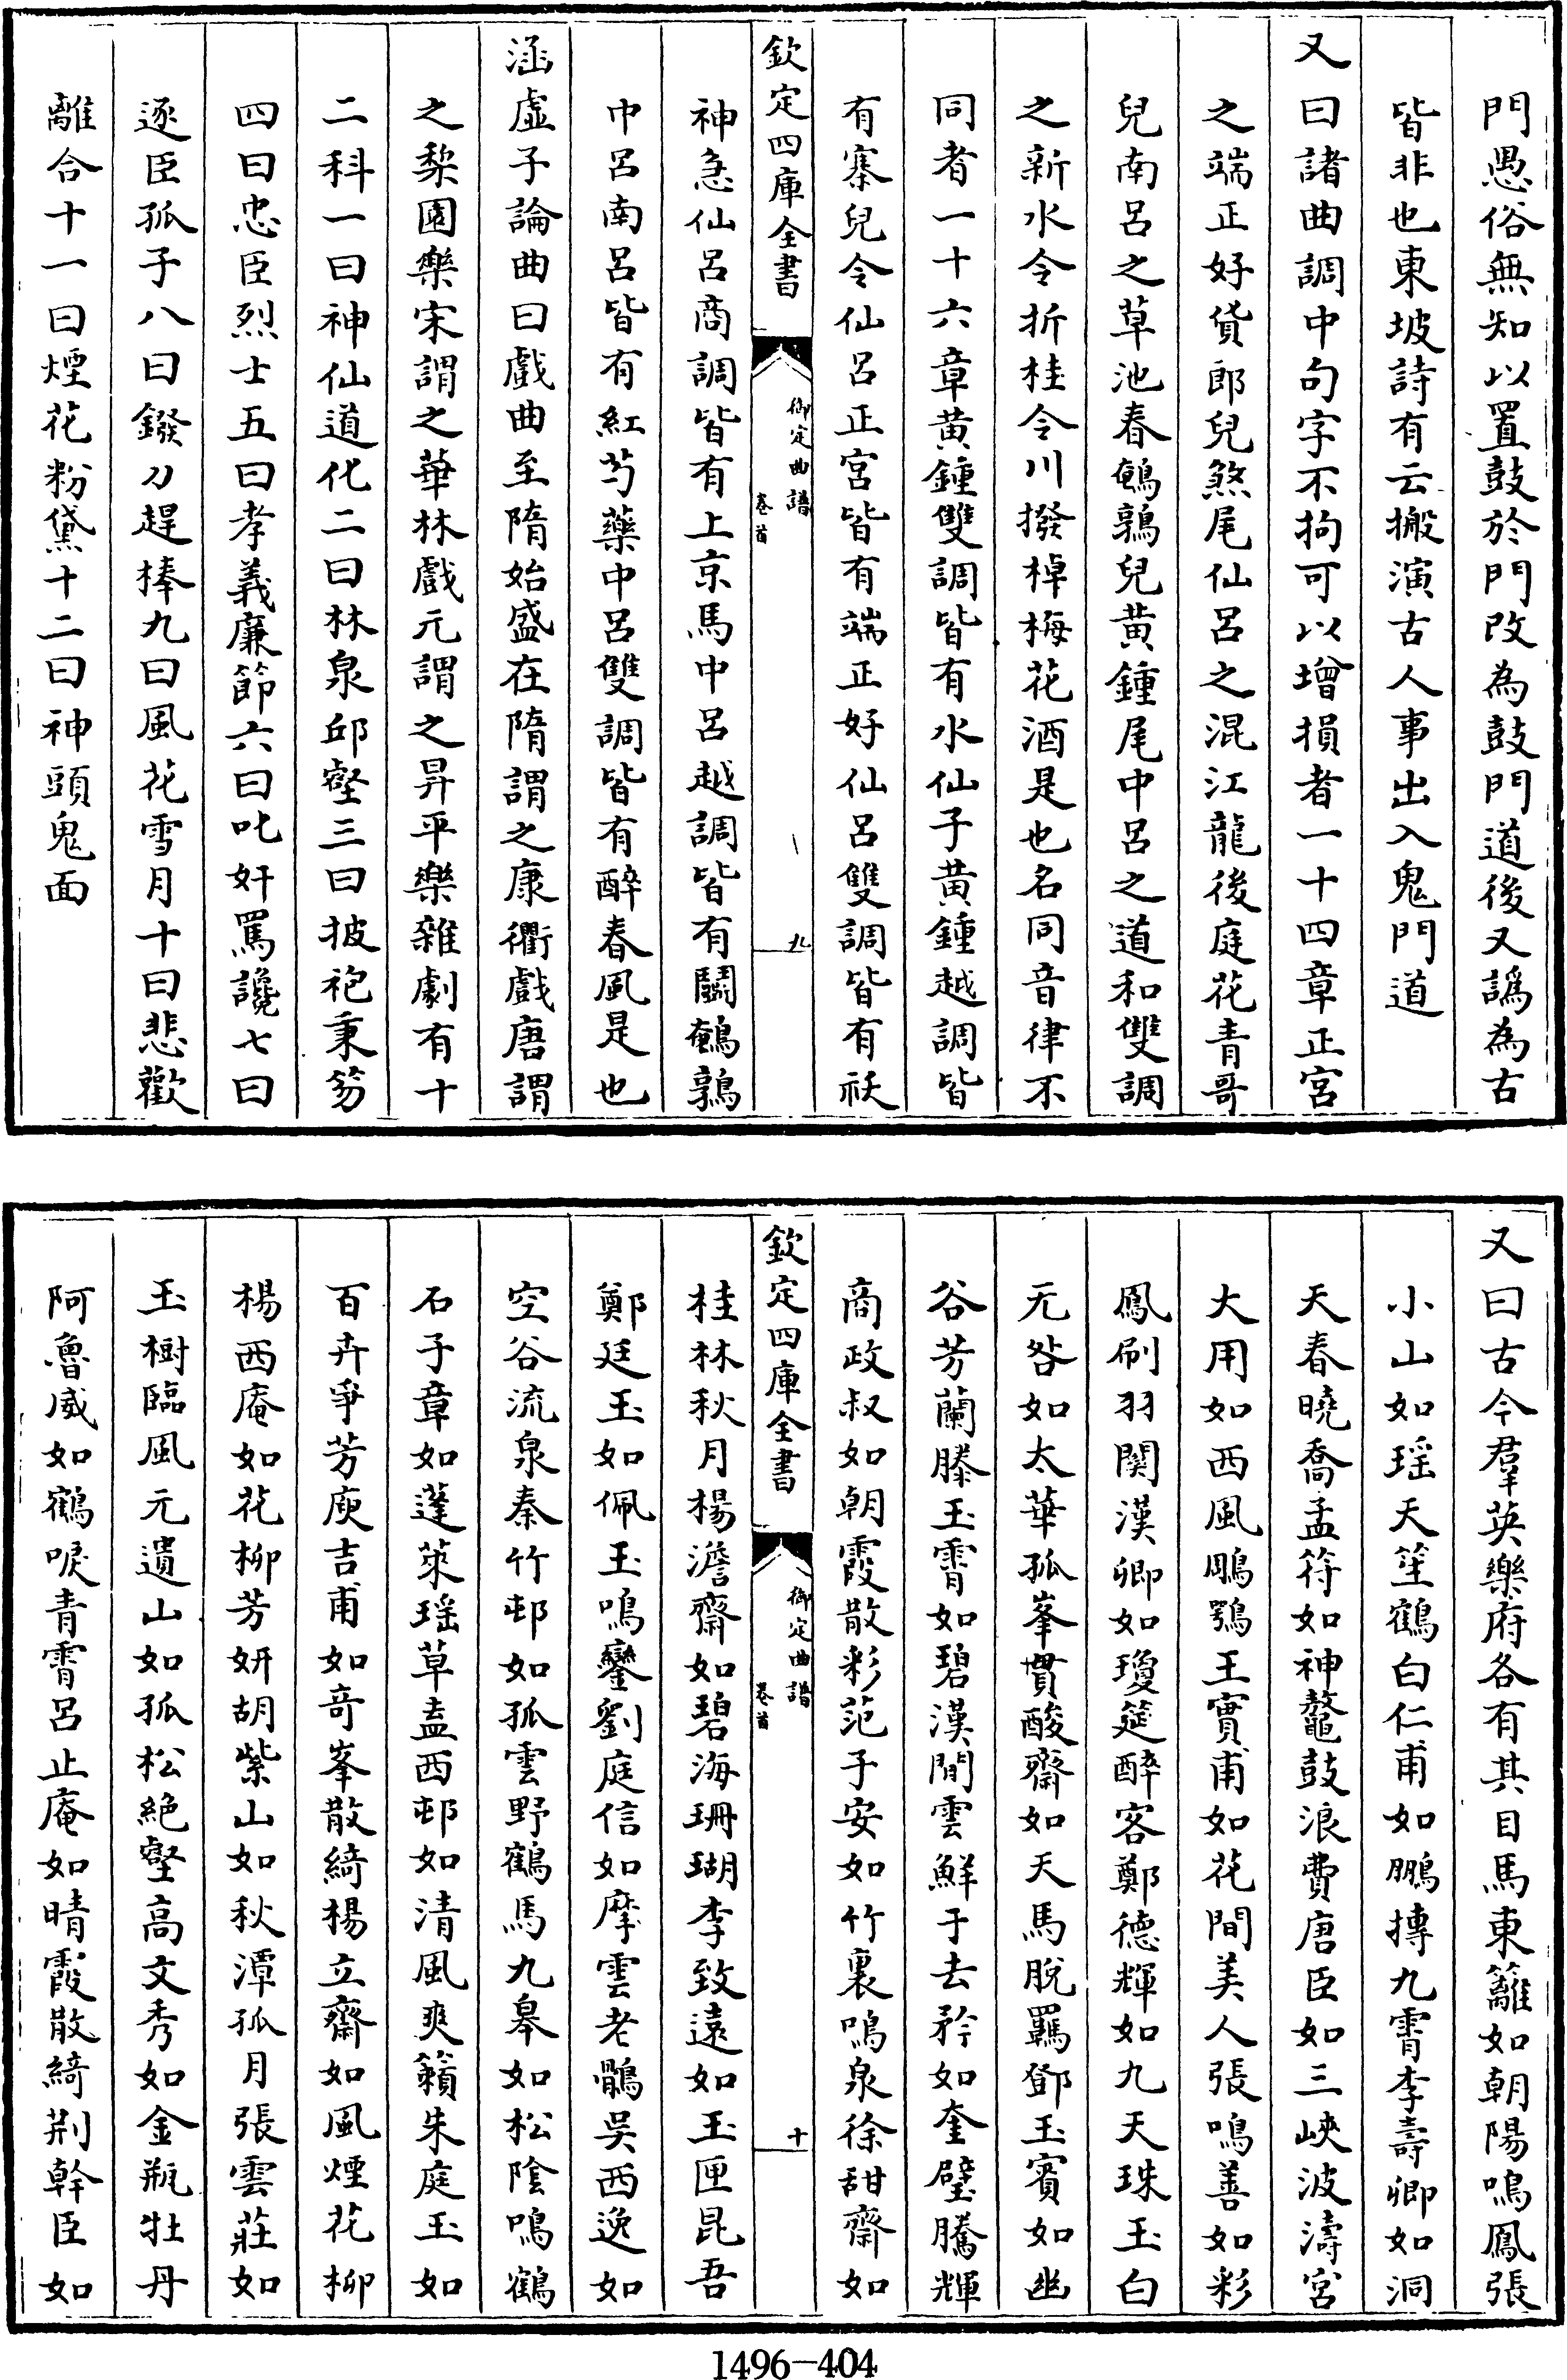 門愚俗無知以置鼓於門改為鼓門道後又譌為古
皆非也東坡詩有云搬演古人事出入鬼門道
又曰諸曲調中句字不拘可以增損者一十四章正宮
之端正好貨郎兒煞尾仙呂之混江龍後庭花青哥
兒南呂之草池春鵪鶉兒黃鍾尾中呂之道和雙調
之新水令折桂令川撥棹梅花酒是也名同音律不
同者一十六章黃鍾雙調皆有水仙子黃鍾越調皆
有寨兒令仙呂正宮皆有端正好仙呂雙調皆有祅
欽定四庫全書
御定曲譜
卷首
九
神急仙呂商調皆有上京馬中呂越調皆有鬭鵪鶉
中呂南呂皆有紅芍藥中呂雙調皆有醉春風是也
涵虛子論曲曰戲曲至隋始盛在隋謂之康衢戲唐謂
之棃園樂宋謂之華林戲元謂之昇平樂雜劇有十
二科一曰神仙道化二曰林泉邱壑三曰披袍秉笏
四曰忠臣烈士五曰孝義廉節六曰叱奸罵讒七曰
逐臣孤子八曰鏺刀趕棒九曰風花雪月十曰悲歡
離合十一曰煙花粉黛十二曰神頭鬼面
又曰古今羣英樂府各有其目馬東籬如朝陽鳴鳳張
小山如瑤天笙鶴白仁甫如鵬摶九霄李壽卿如洞
天春曉喬孟符如神鼇鼓浪費唐臣如三峽波濤宮
大用如西風鵰鶚王實甫如花間美人張鳴善如彩
鳳刷羽関漢卿如瓊筵醉客鄭德輝如九天珠玉白
无咎如太華孤峯貫酸齋如天馬脫羈鄧玉賓如幽
谷芳蘭滕玉霄如碧漢閒雲鮮于去矜如奎璧騰輝
商政叔如朝霞散彩范子安如竹裏鳴泉徐甜齋如
欽定四庫全書
御定曲譜
卷首
十
桂林秋月楊澹齋如碧海珊瑚李致遠如玉匣昆吾
鄭廷玉如佩玉鳴鑾劉庭信如摩雲老鶻吳西逸如
空谷流泉秦竹邨如孤雲野鶴馬九皋如松陰鳴鶴
石子章如蓬萊瑤草盍西邨如清風爽籟朱庭玉如
百卉爭芳庾吉甫如奇峯散綺楊立齋如風煙花柳
楊西庵如花柳芳妍胡紫山如秋潭孤月張雲莊如
玉樹臨風元遺山如孤松絕壑高文秀如金瓶牡丹
阿魯威如鶴唳青霄呂止庵如晴霞散綺荆幹臣如
1496-404